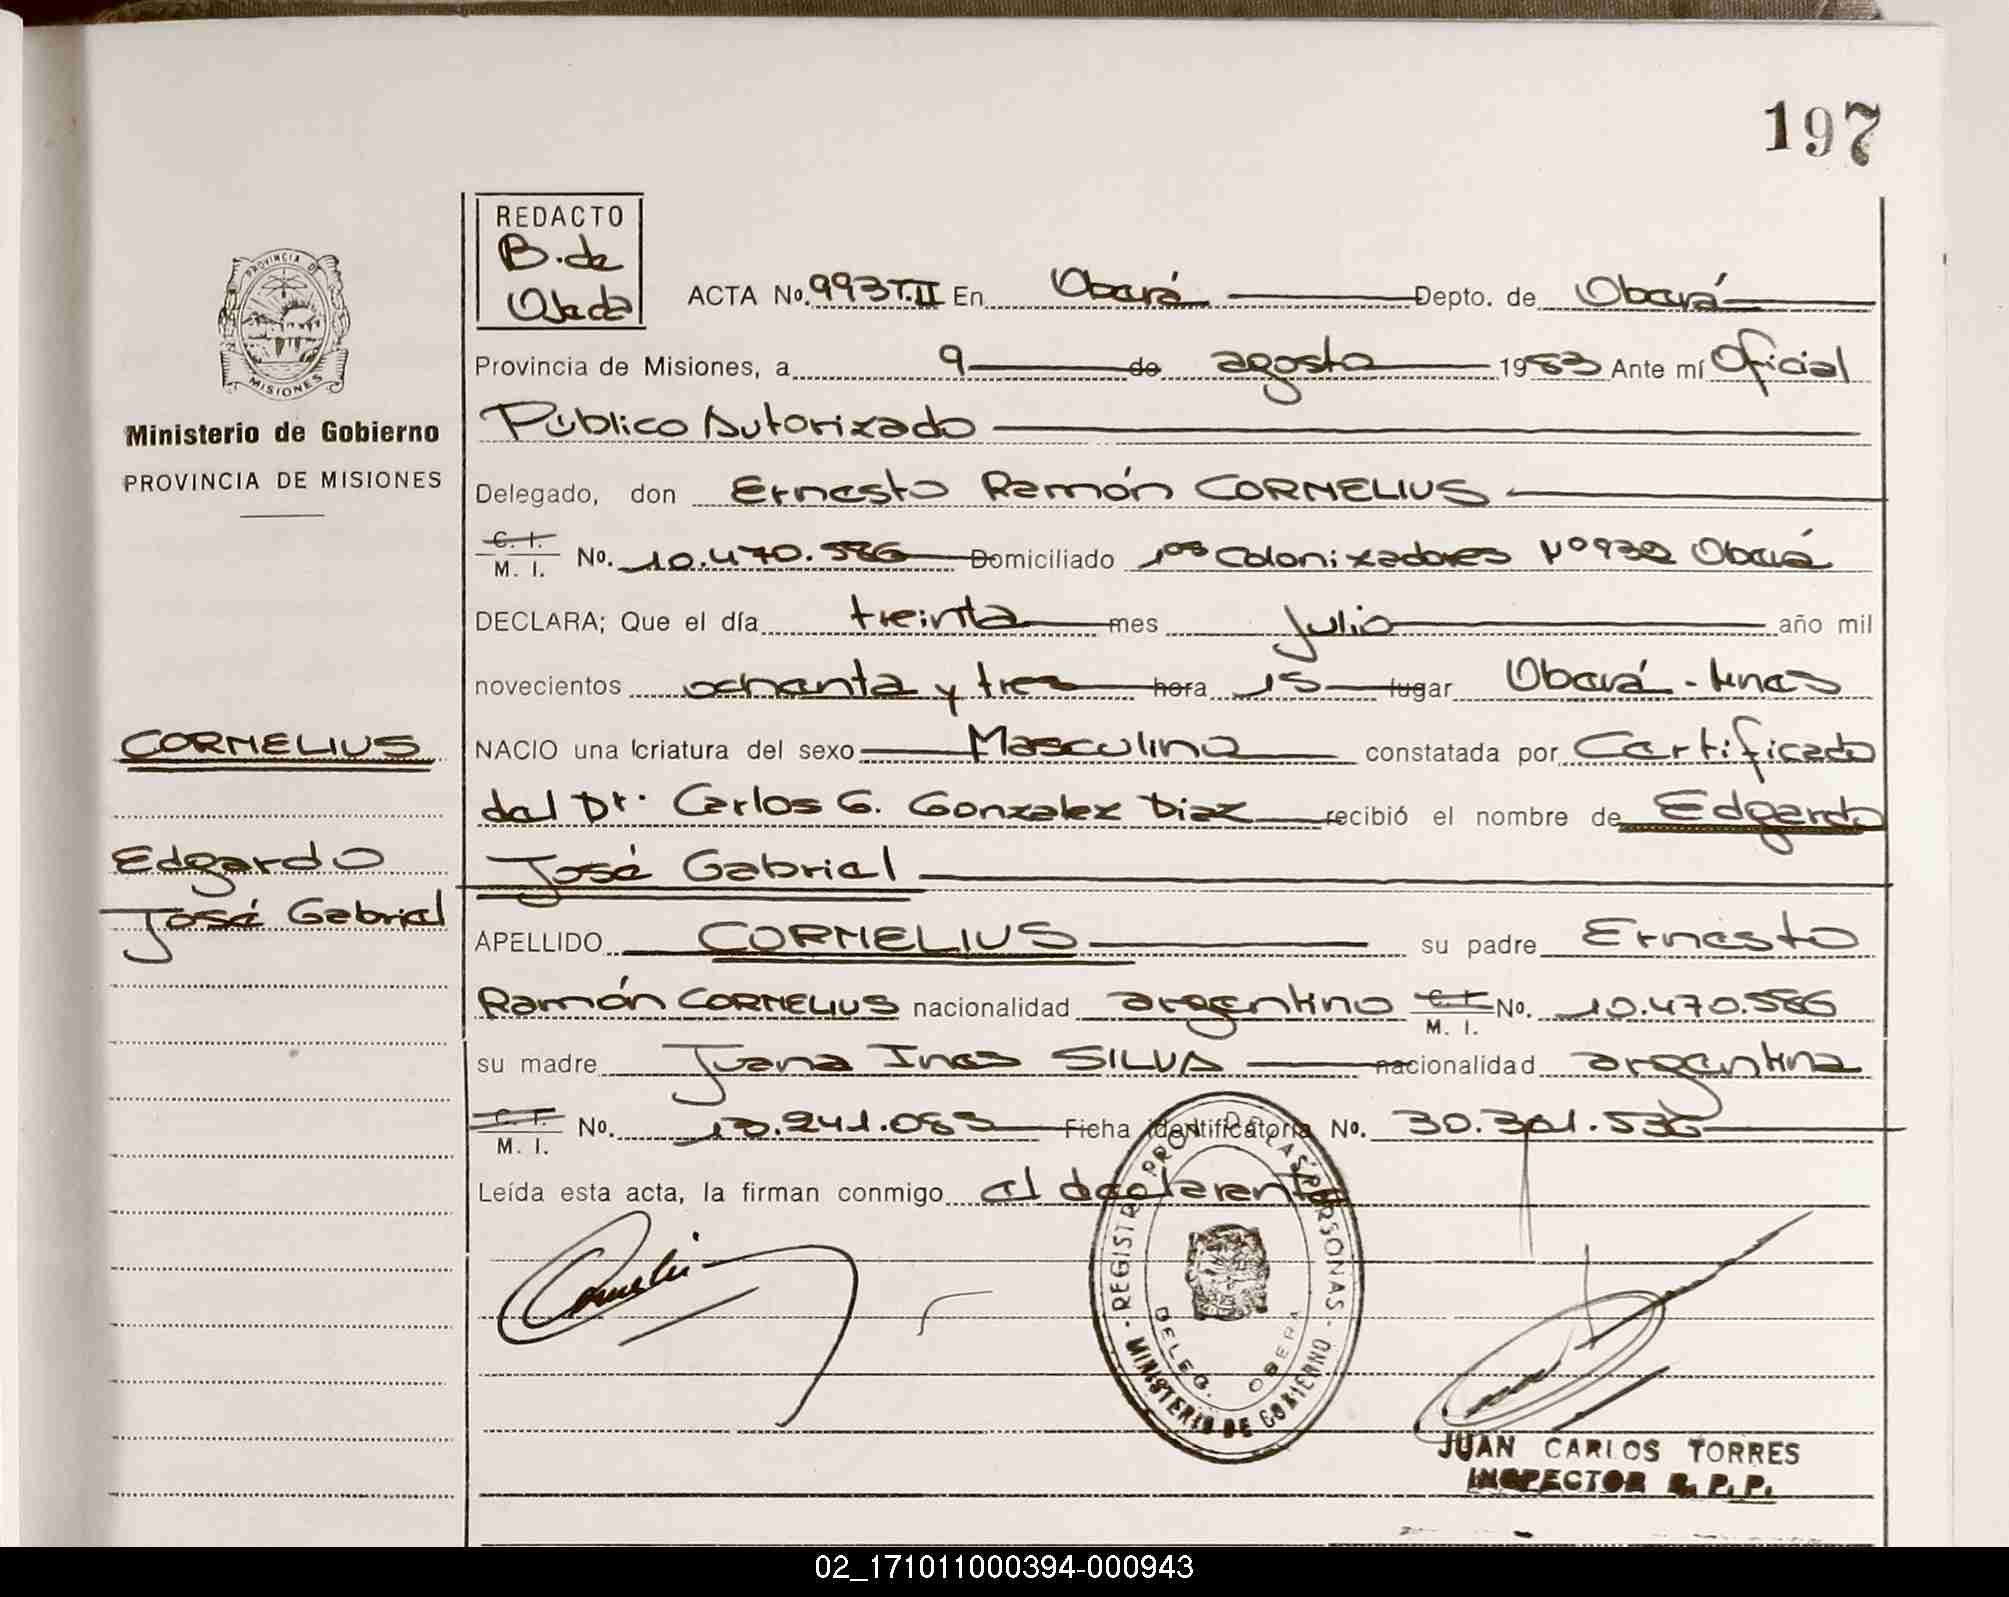 197
REDACTO
B. de
Ojeda
ACTA No. 993 T.II En Oberá Depto. de Oberá
PROVINCIA DE
MISIONES
Provincia de Misiones, a 9 de agosto 1983 Ante mí Oficial
Ministerio de Gobierno
Público Autorizado
PROVINCIA DE MISIONES
Delegado, don Ernesto Ramón CORNELIUS
C. I.
M. I. No. 10.470.586 Domiciliado Colonizadores Nº 932 Oberá
DECLARA; Que el día treinta mes julio año mil
novecientos ochenta y tres hora 15 lugar Oberá - Mnes
CORNELIUS
NACIO una criatura del sexo Masculino constatada por Certificado
del Dr. Carlos G. Gonzalez Diaz recibió el nombre de Edgardo
Edgardo
José Gabriel
José Gabriel
APELLIDO CORNELIUS su padre Ernesto
Ramón CORNELIUS nacionalidad argentino C. I. M. I. No. 10.470.586
su madre Juana Ines SILVA nacionalidad argentina
C. I.
M. I. No. 13.241.083 Ficha identificatoria No. 30.301.536
Leída esta acta, la firman conmigo el declarante
REGISTRO PROV. DE LAS PERSONAS
DELEG. OBERA
MINISTERIO DE GOBIERNO
JUAN CARLOS TORRES
INSPECTOR R. P. P.
02_171011000394-000943